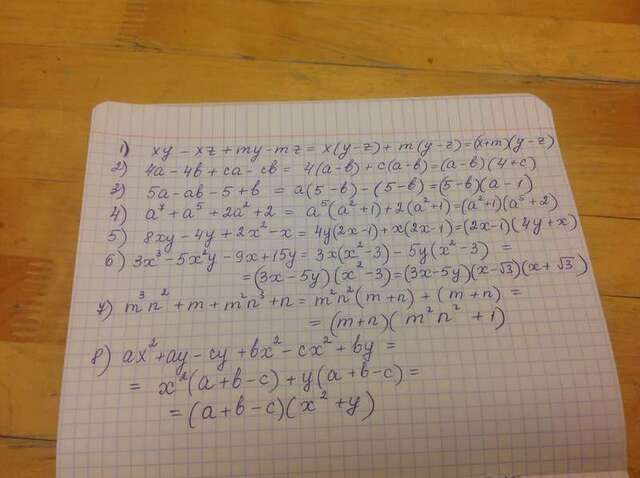 1) xy - xz + my - mz = x(y-z) + m(y-z) = (x+m)(y-z)
2) 4a - 4b + ca - cb = 4(a-b) + c(a-b) = (a-b)(4+c)
3) 5a - ab - 5 + b = a(5-b) - (5-b) = (5-b)(a-1)
4) a⁷ + a⁵ + 2a² + 2 = a⁵(a²+1) + 2(a²+1) = (a²+1)(a⁵+2)
5) 8xy - 4y + 2x² - x = 4y(2x-1) + x(2x-1) = (2x-1)(4y+x)
6) 3x³ - 5x²y - 9x + 15y = 3x(x²-3) - 5y(x²-3) =
= (3x-5y)(x²-3) = (3x-5y)(x-√3)(x+√3)
7) m³n² + m + m²n³ + n = m²n²(m+n) + (m+n) =
= (m+n)(m²n² + 1)
8) ax² + ay - cy + bx² - cx² + by =
= x²(a+b-c) + y(a+b-c) =
= (a+b-c)(x²+y)